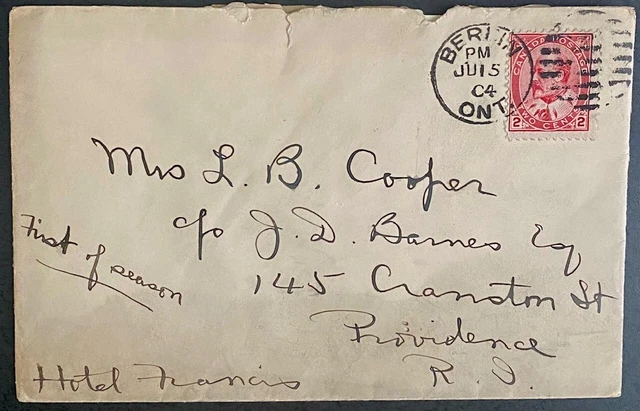 BERLIN
PM
JU 15
04
ONT.
CANADA POSTAGE
2 TWO CENTS 2
Mrs L. B. Cooper
c/o J. D. Barnes Esq
145 Cranston St
Providence
R. I.
First of season
Hotel Francis